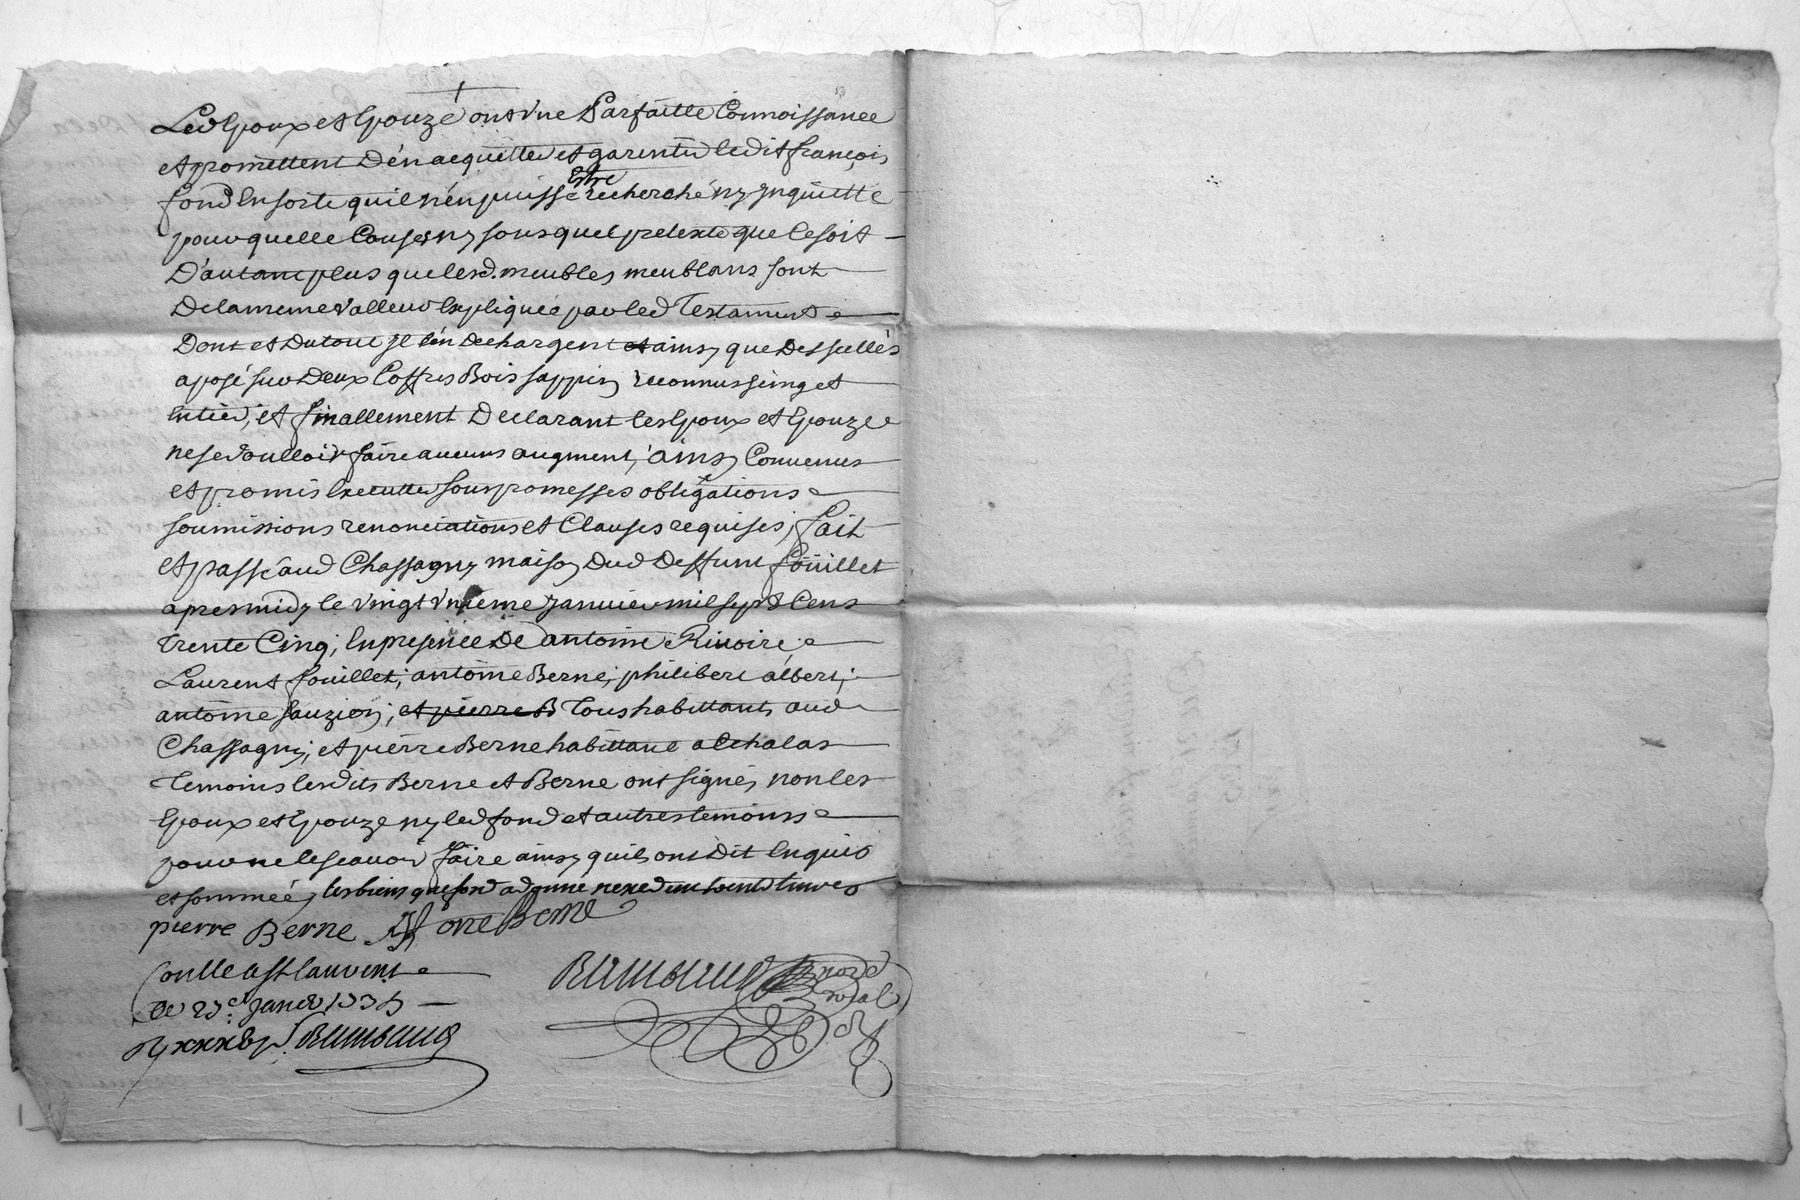 Led Epoux et Epouze ont Une Parfaitte Connoissance
et promettent D'én acquitter et garentir ledit françois
fond En sorte quil n'én puisse estre recherché ny Jnquietté
pour quelle Cause ny sous quel pretexte que Ce soit
D'autant plus que lesd. meubles meublans sont
De la meme Valleur Expliquée par led Testament
Dont et Du tout Jl l'én dechargent et ainsy que Des sellés
aposé sur Deux Coffres Bois sappin reconnus saing et
Entier; et finallement Declarant les Epoux et Epouze
ne se Voulloir faire aucuns augment; ainsy Convenus
et promis Executter sous promesses obligations
soumissions renonciations et Clauses requises; fait
et passé aud Chassagny maison Dud Deffunt foüillet
apres midy le Vingt Unieme Janvier mil sept Cens
Trente Cinq; En presence De antoine Rivoire
Laurent fouillet; antoine Berne; philibert albert;
antoine fauzion; et pierre B Tous habittants aud
Chassagny; et pierre Berne habittant a Echalas
Temoins lesdits Berne et Berne ont signés non les
Epoux et Epouze ny led fond et autres temoins
pour ne le scavoir faire ainsy quils ont Dit Enquis
et sommeé, les biens que fond a donné
pierre Berne Ant one Berne
Conlle a st Laurent
Ce 29e Janer 1735